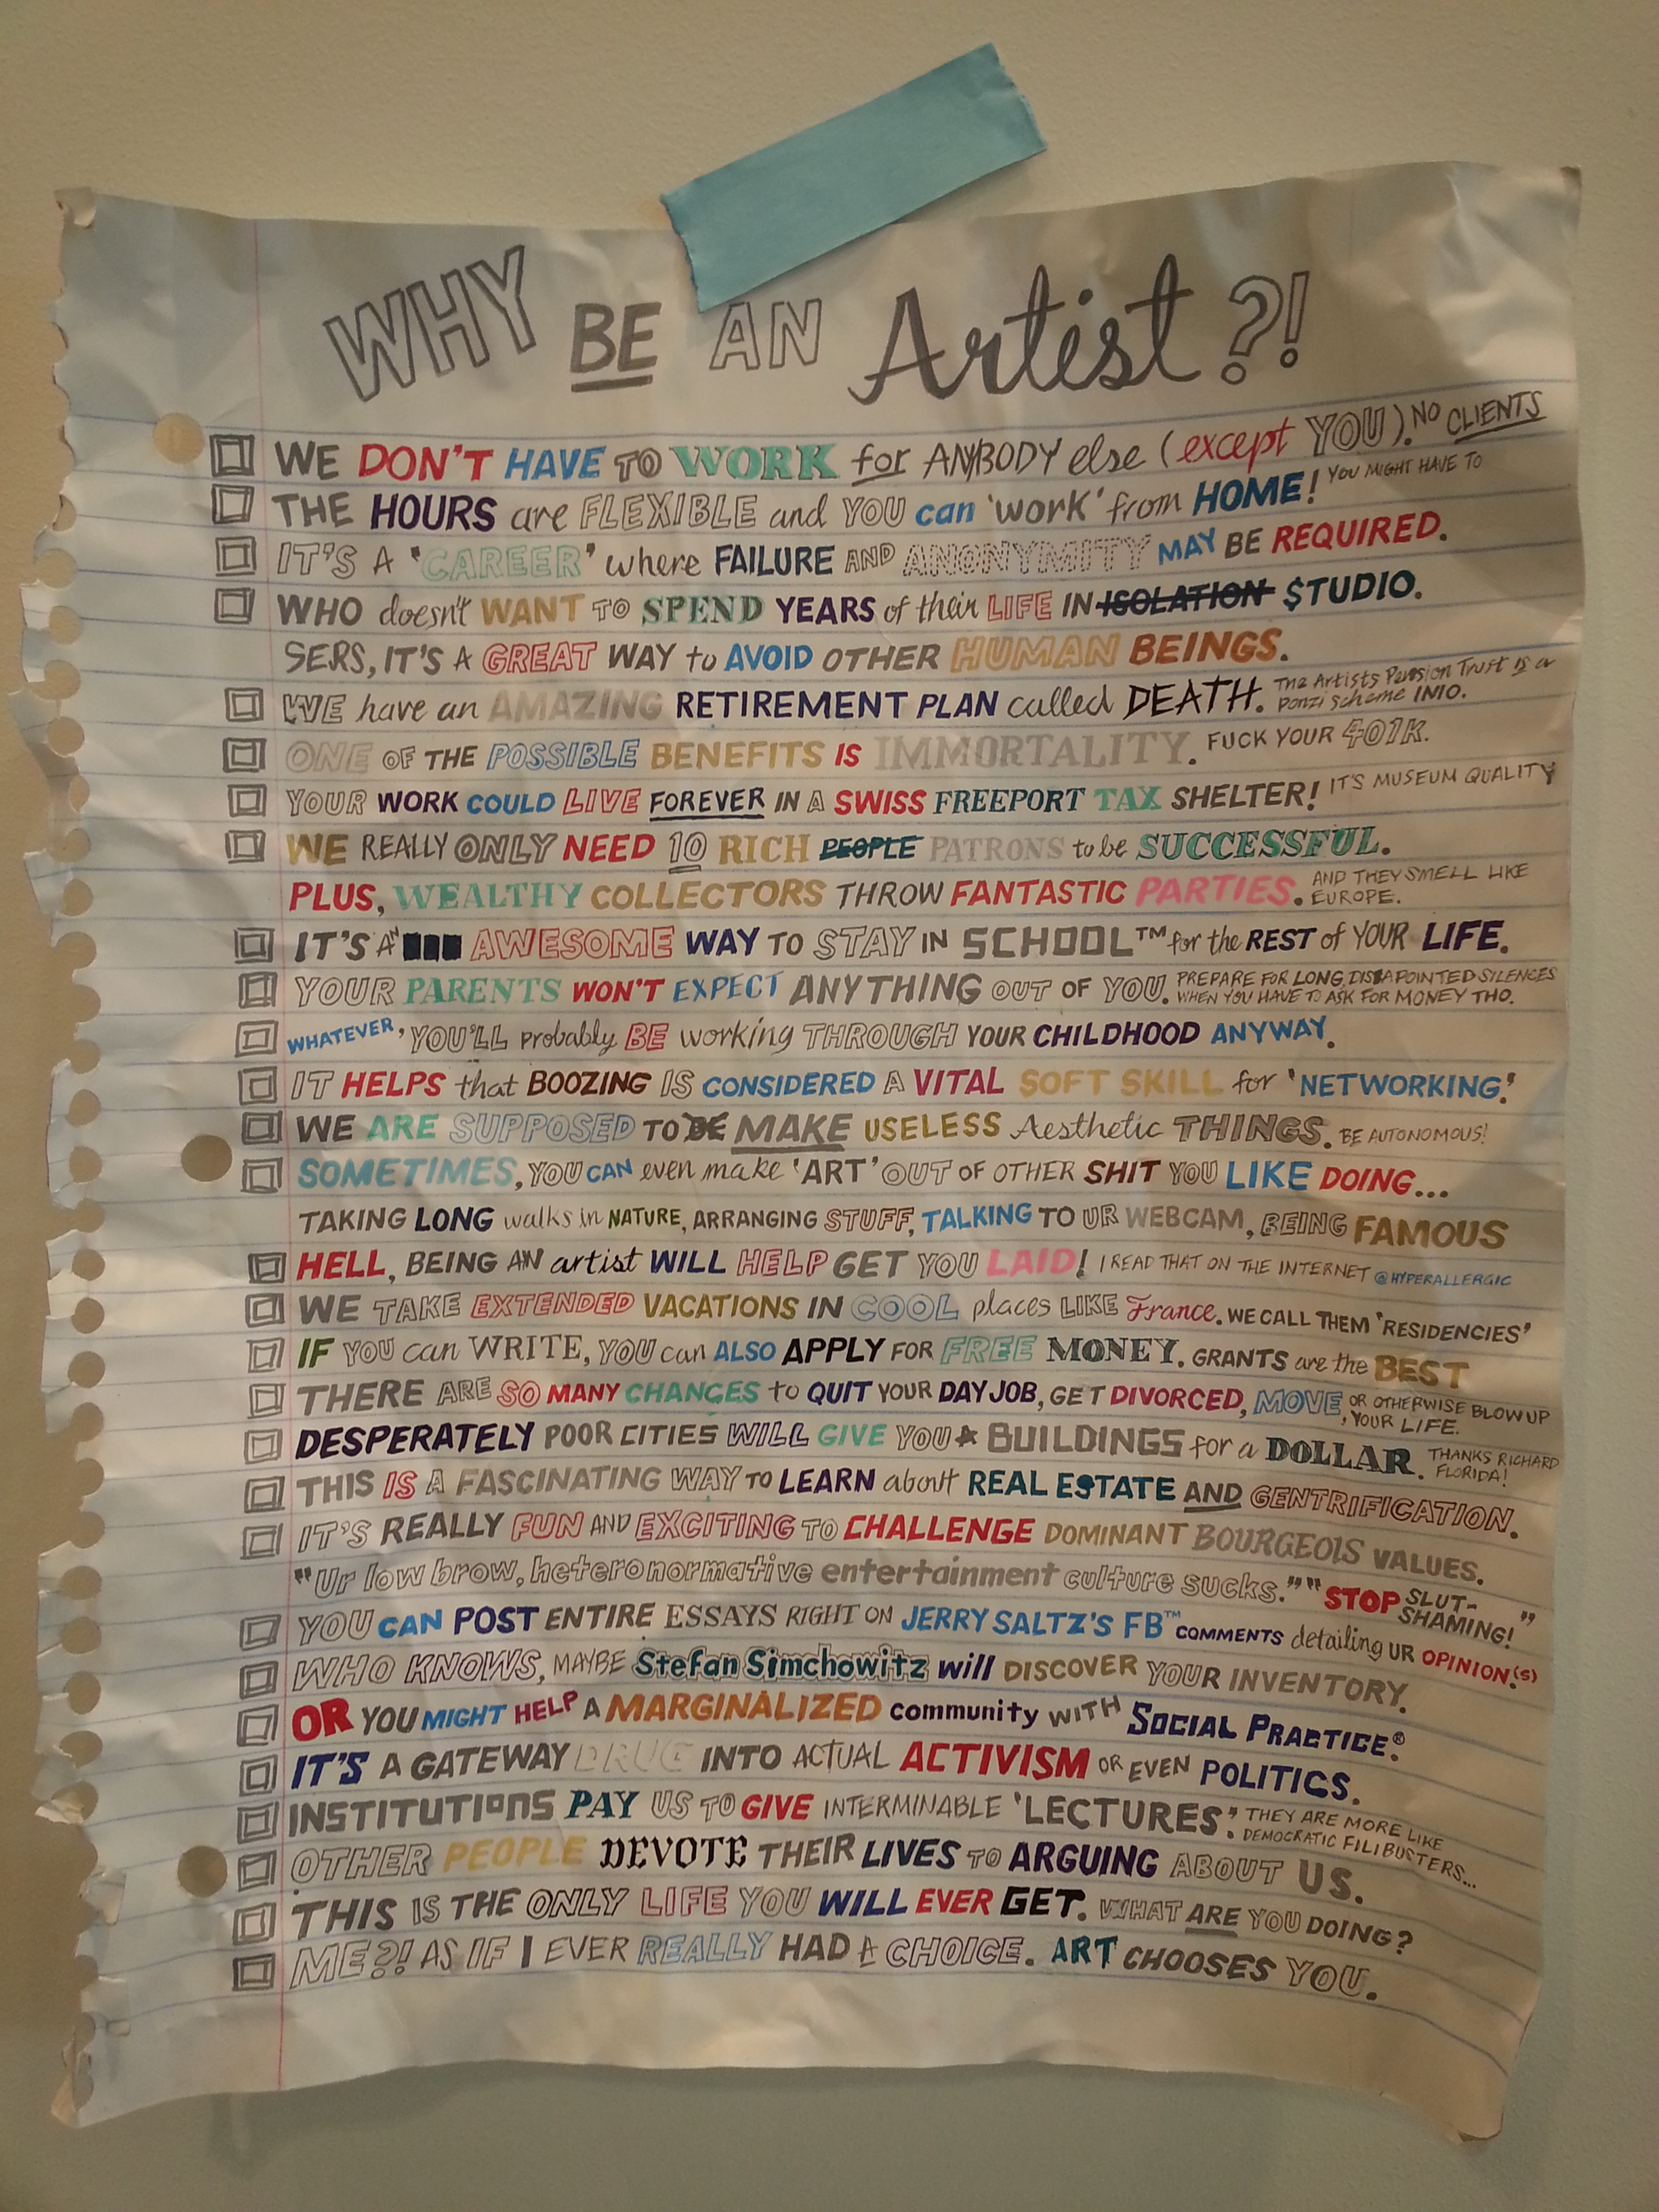 WHY BE AN Artist?!
WE DON'T HAVE TO WORK for ANYBODY else (except YOU). NO CLIENTS
THE HOURS are FLEXIBLE and YOU can 'work' from HOME! YOU MIGHT HAVE TO
IT'S A 'CAREER' where FAILURE AND ANONYMITY MAY BE REQUIRED.
WHO doesn't WANT TO SPEND YEARS of their LIFE IN ISOLATION $TUDIO.
SERS, IT'S A GREAT WAY to AVOID OTHER HUMAN BEINGS.
WE have an AMAZING RETIREMENT PLAN called DEATH. The Artists Pension Trust is a ponzi scheme IMO.
ONE OF THE POSSIBLE BENEFITS IS IMMORTALITY. FUCK YOUR 401K.
YOUR WORK COULD LIVE FOREVER IN A SWISS FREEPORT TAX SHELTER! IT'S MUSEUM QUALITY
WE REALLY ONLY NEED 10 RICH PEOPLE PATRONS to be SUCCESSFUL.
PLUS, WEALTHY COLLECTORS THROW FANTASTIC PARTIES. AND THEY SMELL LIKE EUROPE.
IT'S AN AWESOME WAY TO STAY IN SCHOOL™ for the REST of YOUR LIFE.
YOUR PARENTS WON'T EXPECT ANYTHING OUT OF YOU. PREPARE FOR LONG, DISSAPOINTED SILENCES WHEN YOU HAVE TO ASK FOR MONEY THO.
WHATEVER, YOU'LL probably BE working THROUGH YOUR CHILDHOOD ANYWAY.
IT HELPS that BOOZING IS CONSIDERED A VITAL SOFT SKILL for 'NETWORKING.'
WE ARE SUPPOSED TO BE MAKE USELESS Aesthetic THINGS. BE AUTONOMOUS!
SOMETIMES, YOU CAN even make 'ART' OUT OF OTHER SHIT YOU LIKE DOING...
TAKING LONG walks in NATURE, ARRANGING STUFF, TALKING TO UR WEBCAM, BEING FAMOUS
HELL, BEING AN artist WILL HELP GET YOU LAID! I READ THAT ON THE INTERNET @HYPERALLERGIC
WE TAKE EXTENDED VACATIONS IN COOL places LIKE France. WE CALL THEM 'RESIDENCIES'
IF YOU can WRITE, YOU can ALSO APPLY FOR FREE MONEY. GRANTS are the BEST
THERE ARE SO MANY CHANCES to QUIT YOUR DAY JOB, GET DIVORCED, MOVE, OR OTHERWISE BLOW UP YOUR LIFE.
DESPERATELY POOR CITIES WILL GIVE YOU BUILDINGS for a DOLLAR. THANKS RICHARD FLORIDA!
THIS IS A FASCINATING WAY TO LEARN about REAL ESTATE AND GENTRIFICATION.
IT'S REALLY FUN AND EXCITING TO CHALLENGE DOMINANT BOURGEOIS VALUES.
"Ur low brow, heteronormative entertainment culture sucks." "STOP SLUT-SHAMING!"
YOU CAN POST ENTIRE ESSAYS RIGHT ON JERRY SALTZ'S FB™ COMMENTS detailing UR OPINION(s)
WHO KNOWS, MAYBE Stefan Simchowitz will DISCOVER YOUR INVENTORY.
OR YOU MIGHT HELP A MARGINALIZED community WITH SOCIAL PRACTICE.®
IT'S A GATEWAY DRUG INTO ACTUAL ACTIVISM OR EVEN POLITICS.
INSTITUTIONS PAY US TO GIVE INTERMINABLE 'LECTURES'. THEY ARE MORE LIKE DEMOCRATIC FILIBUSTERS...
OTHER PEOPLE DEVOTE THEIR LIVES TO ARGUING ABOUT US.
THIS IS THE ONLY LIFE YOU WILL EVER GET. WHAT ARE YOU DOING?
ME?! AS IF I EVER REALLY HAD A CHOICE. ART CHOOSES YOU.